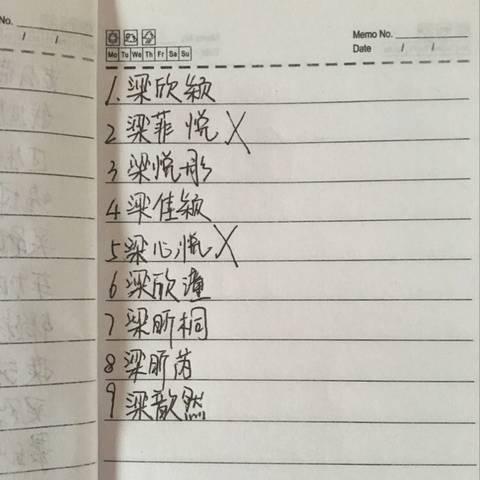 No.
/ /
Memo No.
Date / /
Mo Tu We Th Fr Sa Su
1.梁欣颖
2 梁菲悦 X
3 梁悦彤
4 梁佳颖
5 梁心悦 X
6 梁欣潼
7 梁昕桐
8 梁昕芮
9 梁歆然